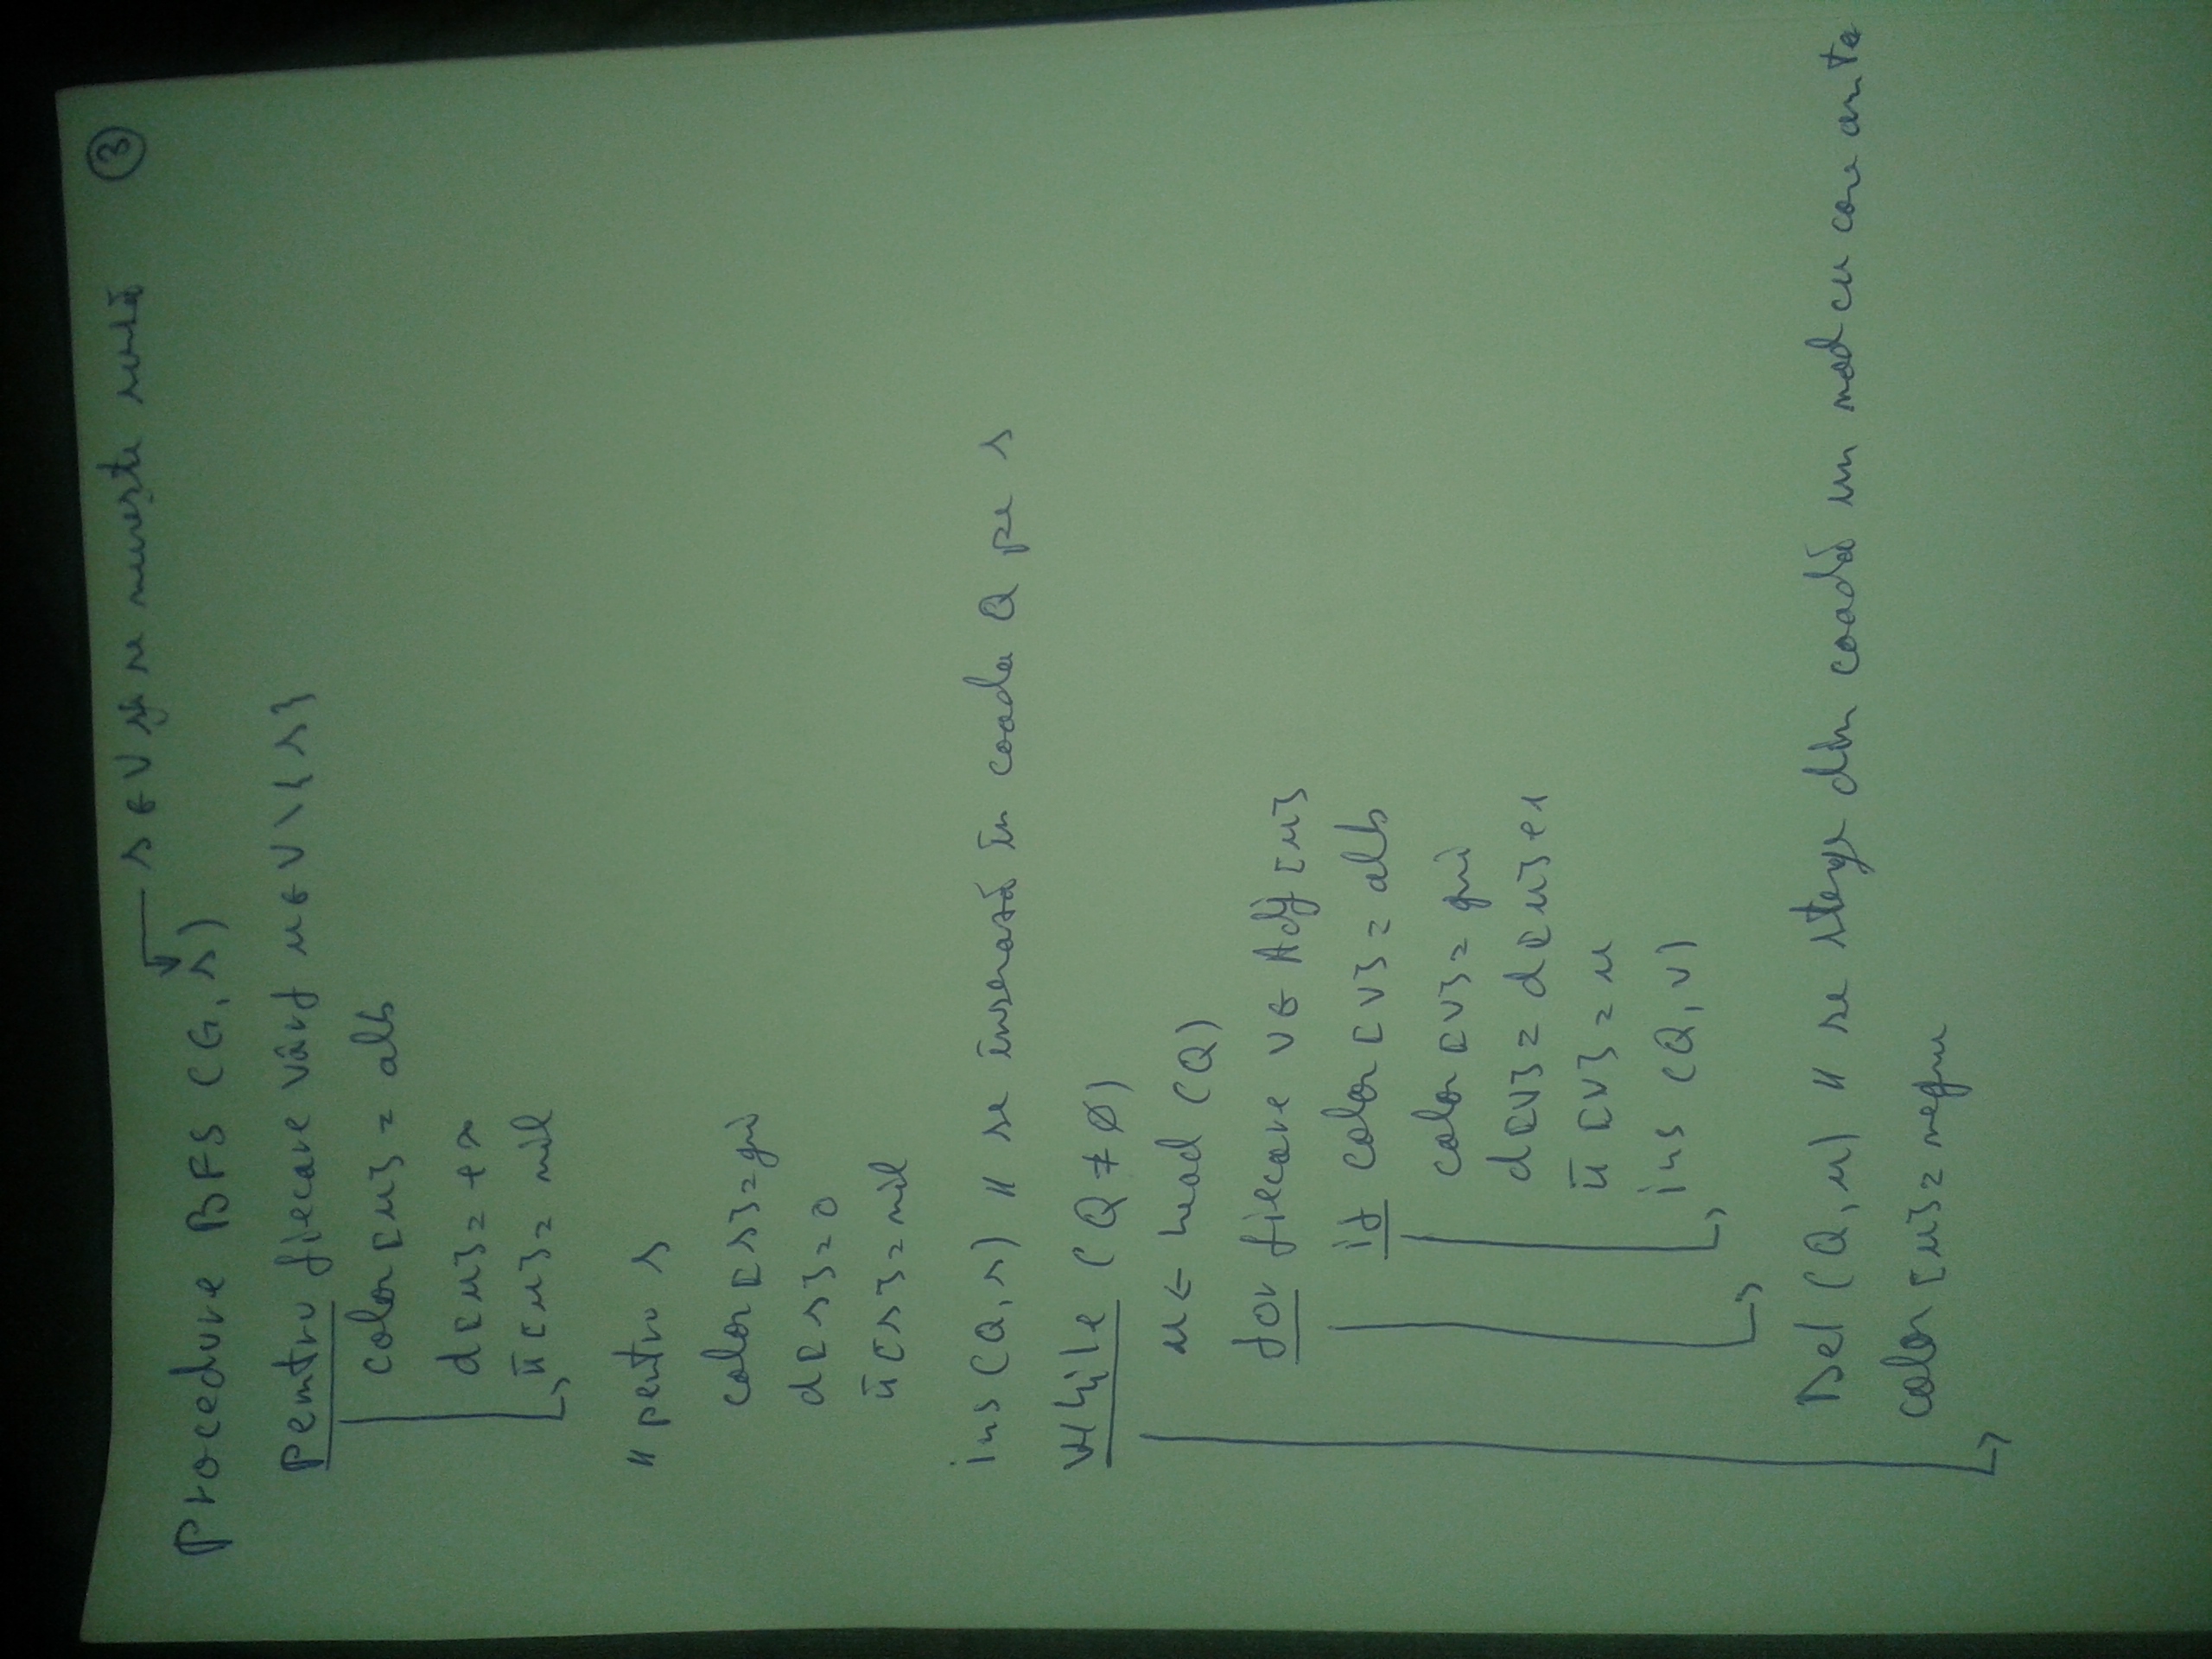 s ∈ V și se numește sursă
③
Procedure BFS (G, s)
pemtru fiecare vârf u ∈ V \ { s }
color [u] = alb
d[u] = +∞
π[u] = nil
// pentru s
color [s] = gri
d[s] = 0
π[s] = nil
ins (Q, s) // se înserază în coada Q pe s
while (Q ≠ Ø)
u ← head (Q)
for fiecare v ∈ Adj [u]
if color [v] = alb
color [v] = gri
d[v] = d[u] + 1
π [v] = u
ins (Q, v)
Del (Q, u) // se sterge din coadă un nod cu care
color [u] = negru